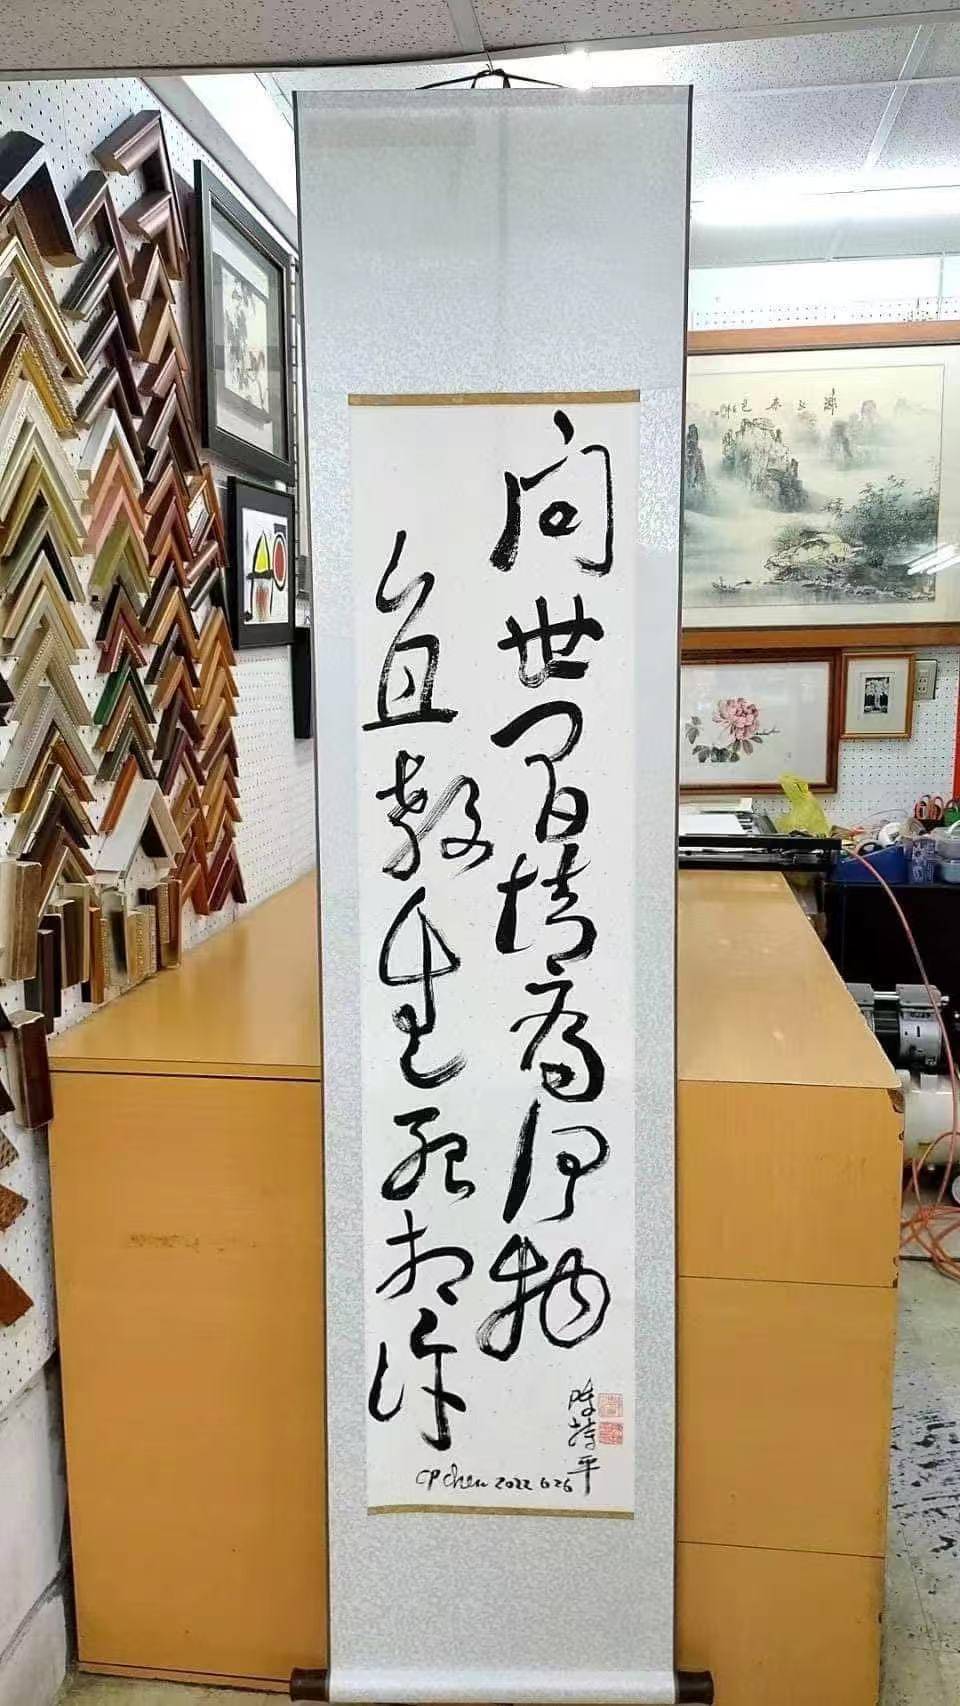 問世間情為何物
直教生死相許
陳持平
CP Chen 2022 6 26